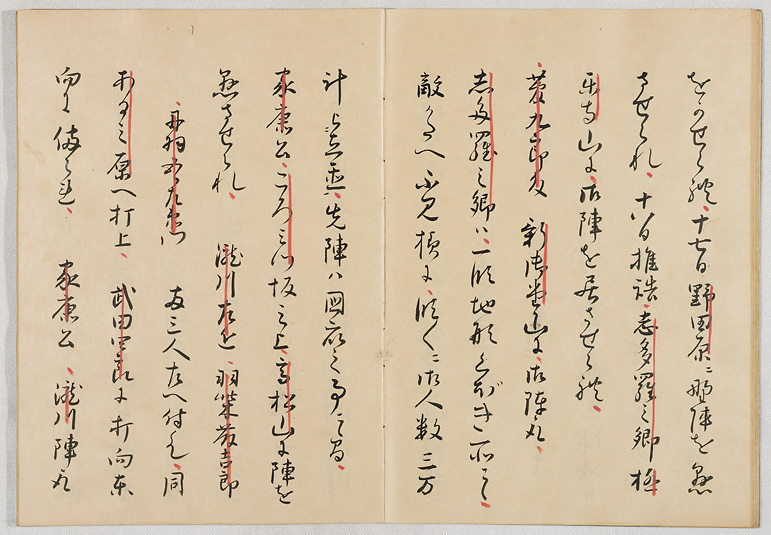 をかせられ 十七日野田原ニ野陣を懸
させられ 十八日推詰 志多羅之郷 極
楽寺山に 御陣を居させられ
菅九郎殿 新御堂山に 御陣取
志多羅之郷ハ 一段地形くぼき所に
敵かたへ不見様に 段々ニ御人数三万
計 先陣ハ国衆之事に
家康公 ころミつ坂之上 高松山に陣を
懸させられ 瀧川左近 羽柴藤吉郎
丹羽五郎左衛門 両三人左へ付て 同
あるミ原へ打上 武田四郎に打向 東
向に備られ 家康公 瀧川陣取